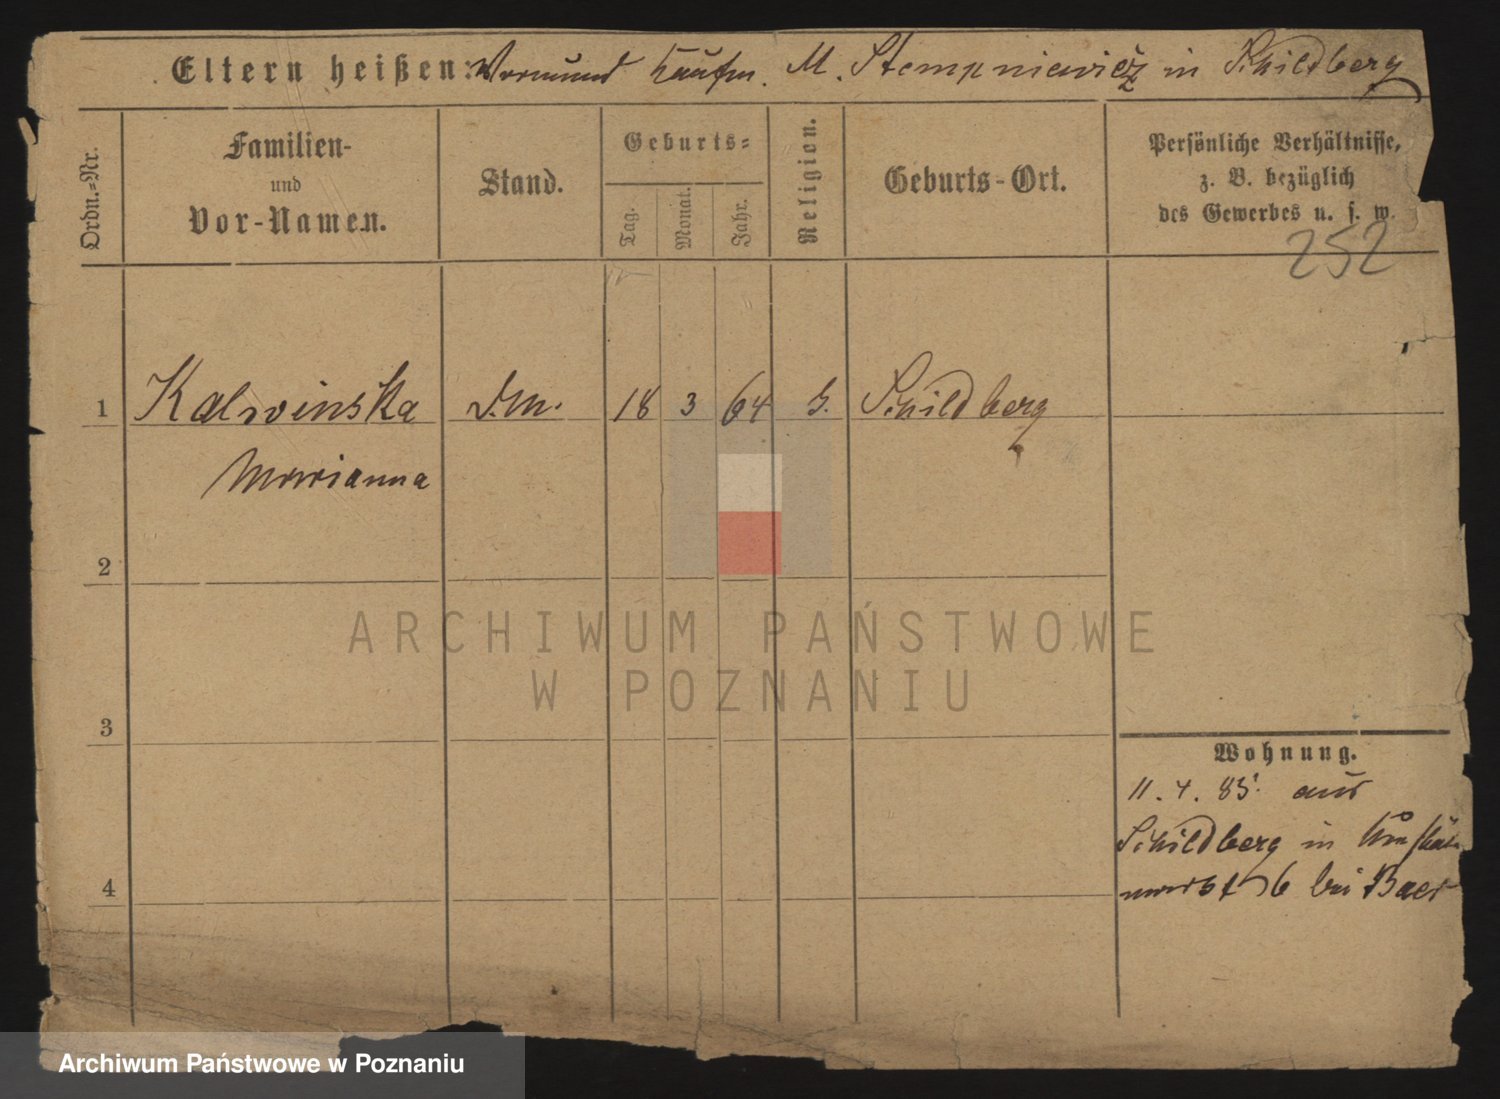 Eltern heißen: Vormund Kaufm. M. Stempniewicz in Schildberg
Ordn.=Nr.
Familien-
und
Vor-Namen.
Stand.
Geburts=
Tag.
Monat.
Jahr.
Religion.
Geburts-Ort.
Persönliche Verhältnisse,
z. B. bezüglich
des Gewerbes u. s. w.
252
1 Kalwinska D.M. 18 3 64 Schildberg
Marianna
2
3
4
Wohnung.
11.4.85. aus
Schildberg in
6 bei Baer
ARCHIWUM PAŃSTWOWE
W POZNANIU
Archiwum Państwowe w Poznaniu